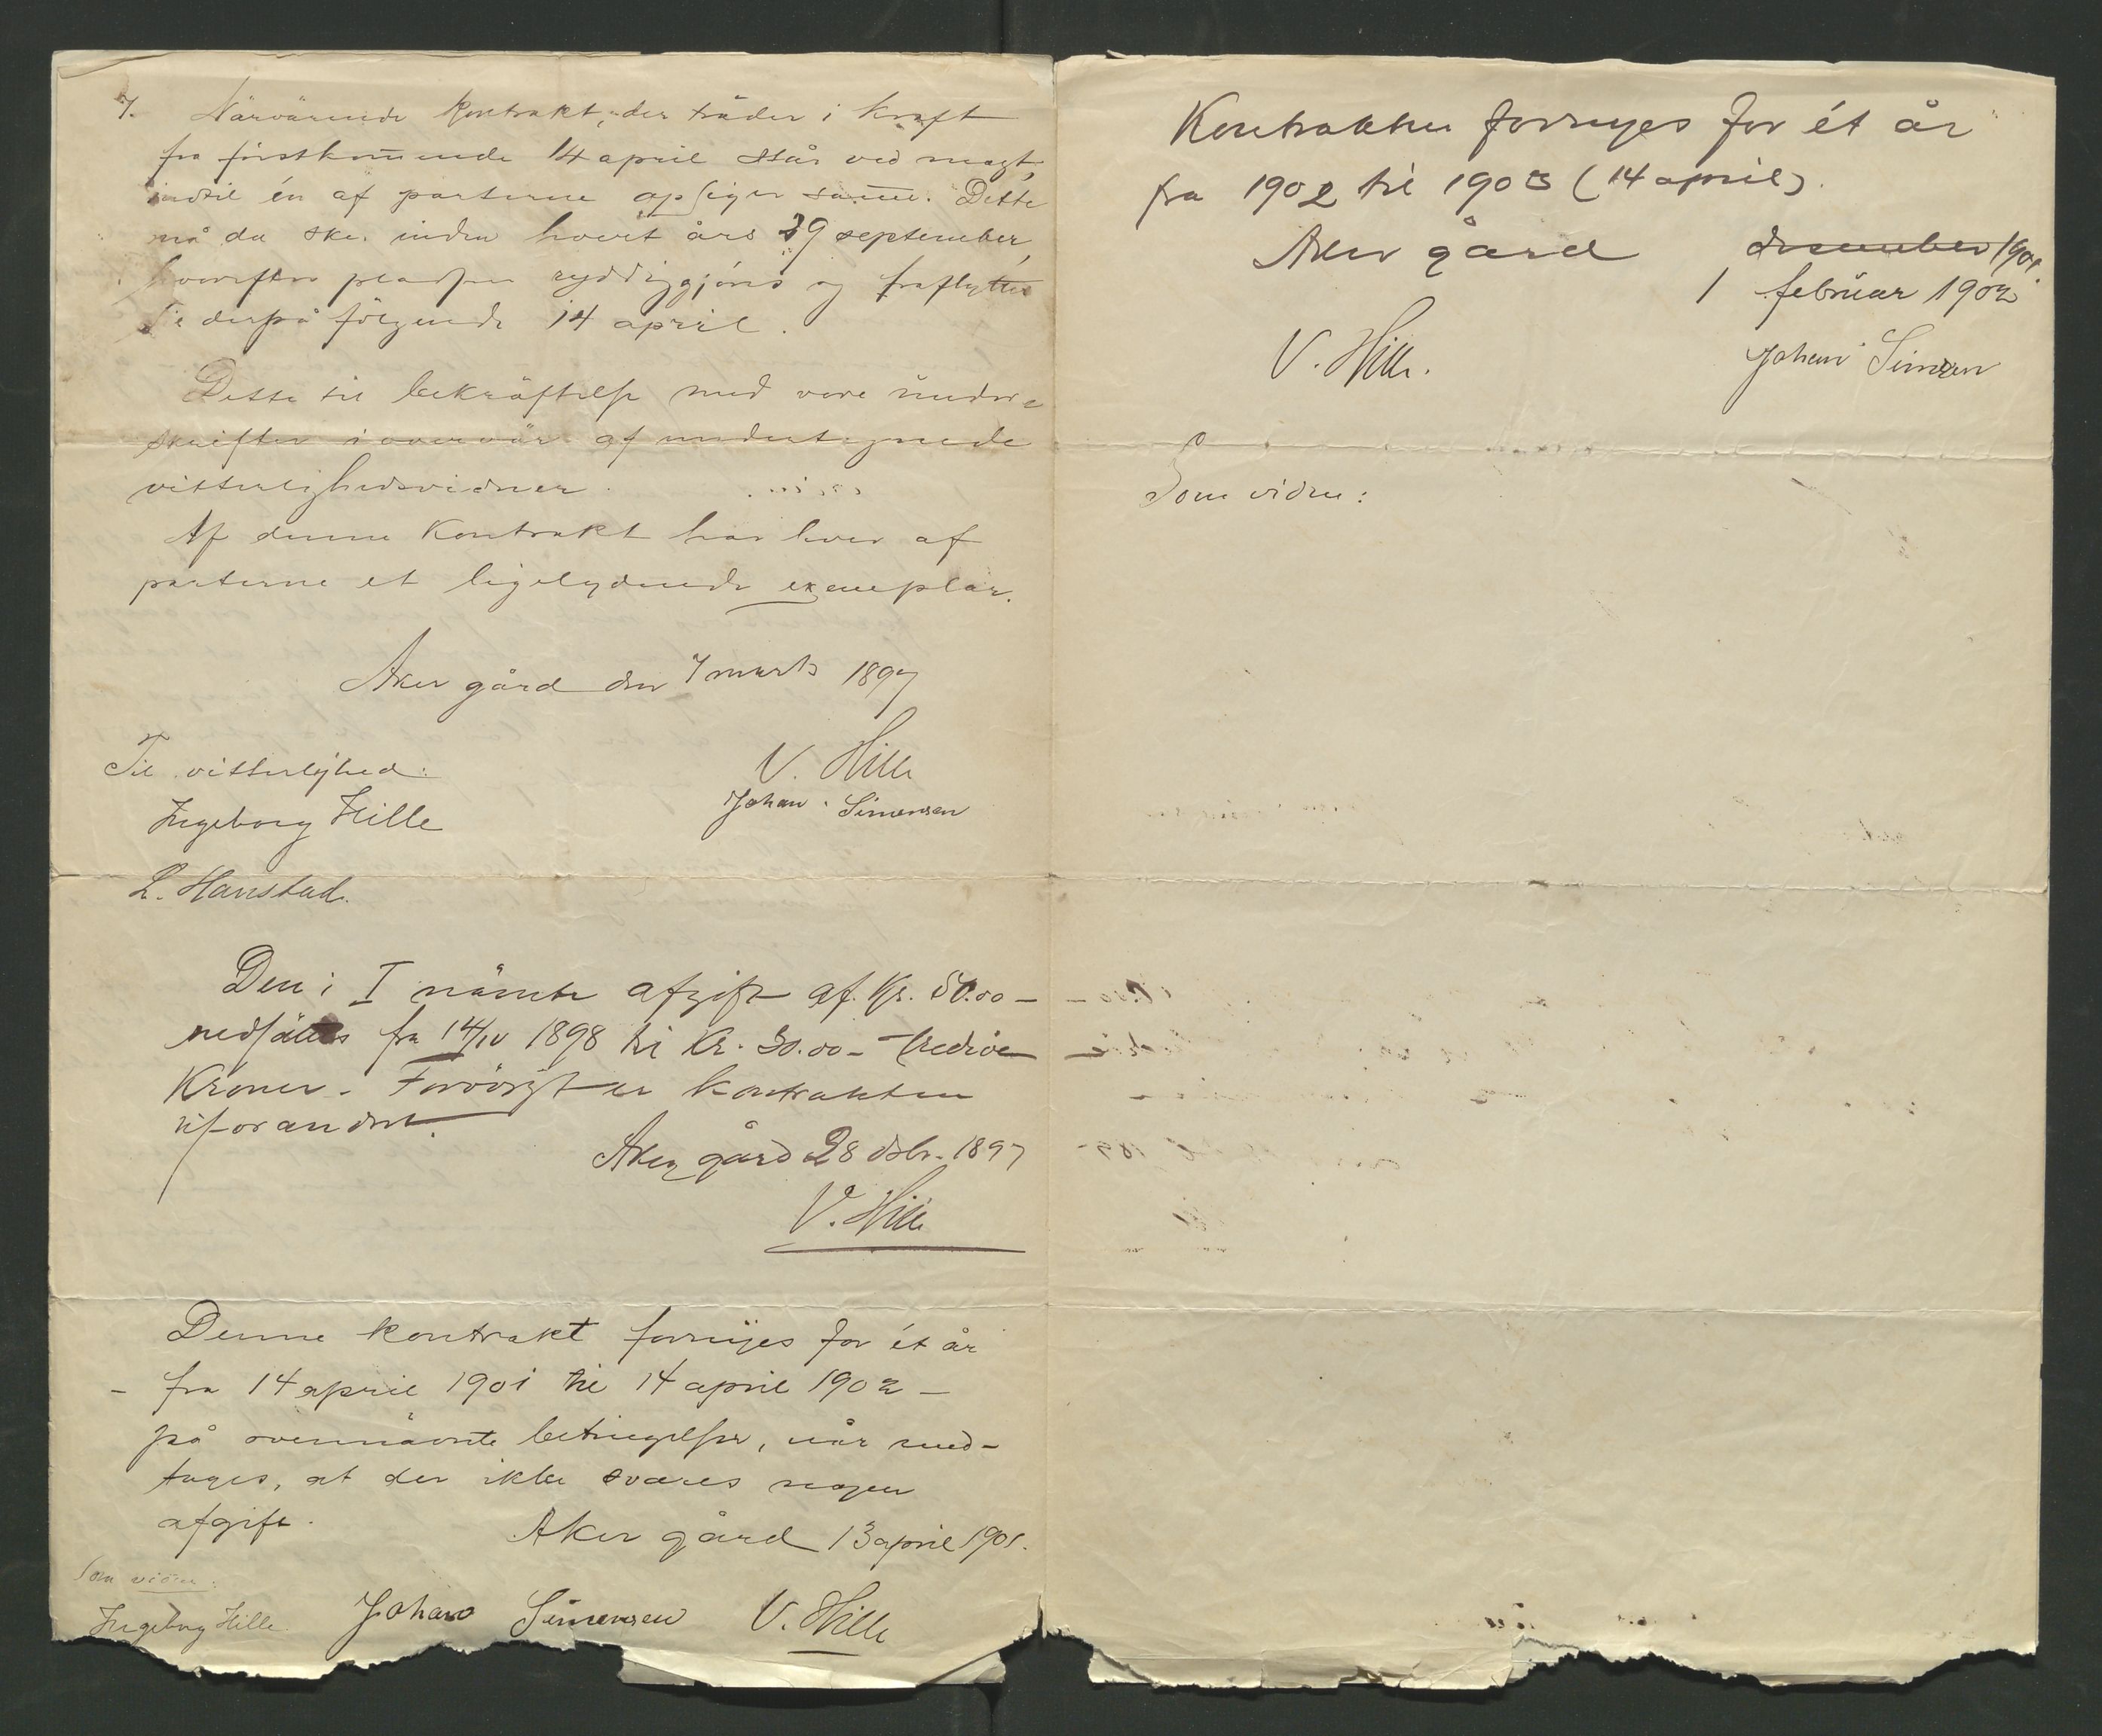 7. Närvärende kontrakt, der träder i kraft
fra förstkommende 14 april står ved magt,
indtil én af parterne opsiger samme. Dette
må da ske inden hvert års 29 september,
hvorefter pladsen ryddiggjöres og fraflyttes
til derpå fölgende 14 april.
Dette til bekräftelse med vore under-
skrifter i overvär af undertegnede
vitterlighedsvidner.
Af denne kontrakt har hver af
parterne et ligelydende exemplar.
Aker gård den 7 marts 1897
Til vitterlighed:
V. Hille
Johan Simensen
Ingeborg Hille
L. Hanstad.
Den i I nämte afgift af Kr. 50.00 –
nedsättes fra 14/IV 1898 til Kr. 30.00 – tredive
Kroner – Forövrigt er kontrakten
uforandret.
Aker gård 28 dsbr. 1897
V. Hille
Denne kontrakt fornyes for ét år
– fra 14 april 1901 til 14 april 1902 –
på ovennävnte betingelser, når und-
tages, at der ikke svares nogen
afgift.
Aker gård 13 april 1901.
Som vidne:
Ingeborg Hille
Johan Simensen
V. Hille
Kontrakten fornyes for ét år
fra 1902 til 1903 (14 april).
Aker gård
desember 1901
1 februar 1902
V. Hille.
Johan Simsen
Som vidne: